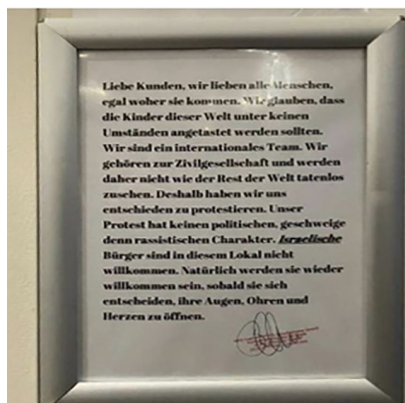 Liebe Kunden, wir lieben alle Menschen,
egal woher sie kommen. Wir glauben, dass
die Kinder dieser Welt unter keinen
Umständen angetastet werden sollten.
Wir sind ein internationales Team. Wir
gehören zur Zivilgesellschaft und werden
daher nicht wie der Rest der Welt tatenlos
zusehen. Deshalb haben wir uns
entschieden zu protestieren. Unser
Protest hat keinen politischen, geschweige
denn rassistischen Charakter. Israelische
Bürger sind in diesem Lokal nicht
willkommen. Natürlich werden sie wieder
willkommen sein, sobald sie sich
entscheiden, ihre Augen, Ohren und
Herzen zu öffnen.